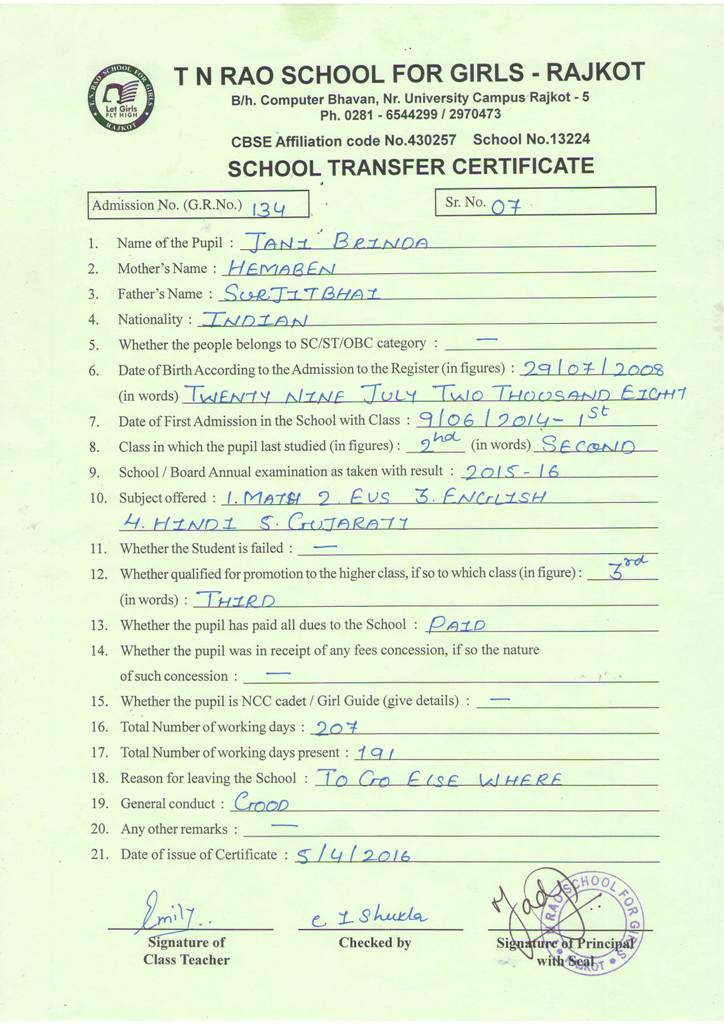 T. N. RAO SCHOOL FOR GIRLS
Let Girls
FLY HIGH
RAJKOT
T N RAO SCHOOL FOR GIRLS - RAJKOT
B/h. Computer Bhavan, Nr. University Campus Rajkot - 5
Ph. 0281 - 6544299 / 2970473
CBSE Affiliation code No.430257 School No.13224
SCHOOL TRANSFER CERTIFICATE
Admission No. (G.R.No.) 134 Sr. No. 07
1. Name of the Pupil : JANI BRINDA
2. Mother's Name : HEMABEN
3. Father's Name : SURJITBHAI
4. Nationality : INDIAN
5. Whether the people belongs to SC/ST/OBC category : —
6. Date of Birth According to the Admission to the Register (in figures) : 29/07/2008
(in words) TWENTY NINE JULY TWO THOUSAND EIGHT
7. Date of First Admission in the School with Class : 9/06/2014 - 1st
8. Class in which the pupil last studied (in figures) : 2nd (in words) SECOND
9. School / Board Annual examination as taken with result : 2015-16
10. Subject offered : 1. MATH 2. EVS 3. ENGLISH
4. HINDI 5. GUJARATI
11. Whether the Student is failed : —
12. Whether qualified for promotion to the higher class, if so to which class (in figure) : 3rd
(in words) : THIRD
13. Whether the pupil has paid all dues to the School : PAID
14. Whether the pupil was in receipt of any fees concession, if so the nature
of such concession : —
15. Whether the pupil is NCC cadet / Girl Guide (give details) : —
16. Total Number of working days : 207
17. Total Number of working days present : 191
18. Reason for leaving the School : TO GO ELSE WHERE
19. General conduct : GOOD
20. Any other remarks : —
21. Date of issue of Certificate : 5/4/2016
Emily.. C I Shukla
Signature of Checked by Signature of Principal
Class Teacher with Seal
RAO SCHOOL FOR GIRLS
RAJKOT